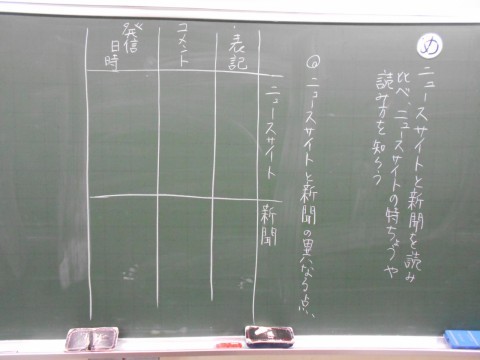 め
ニュースサイトと新聞を読み
比べ、ニュースサイトの特ちょうや
読み方を知ろう
◎ニュースサイトと新聞の異なる点、
ニュースサイト
新聞
・表記
コメント
発信
日時